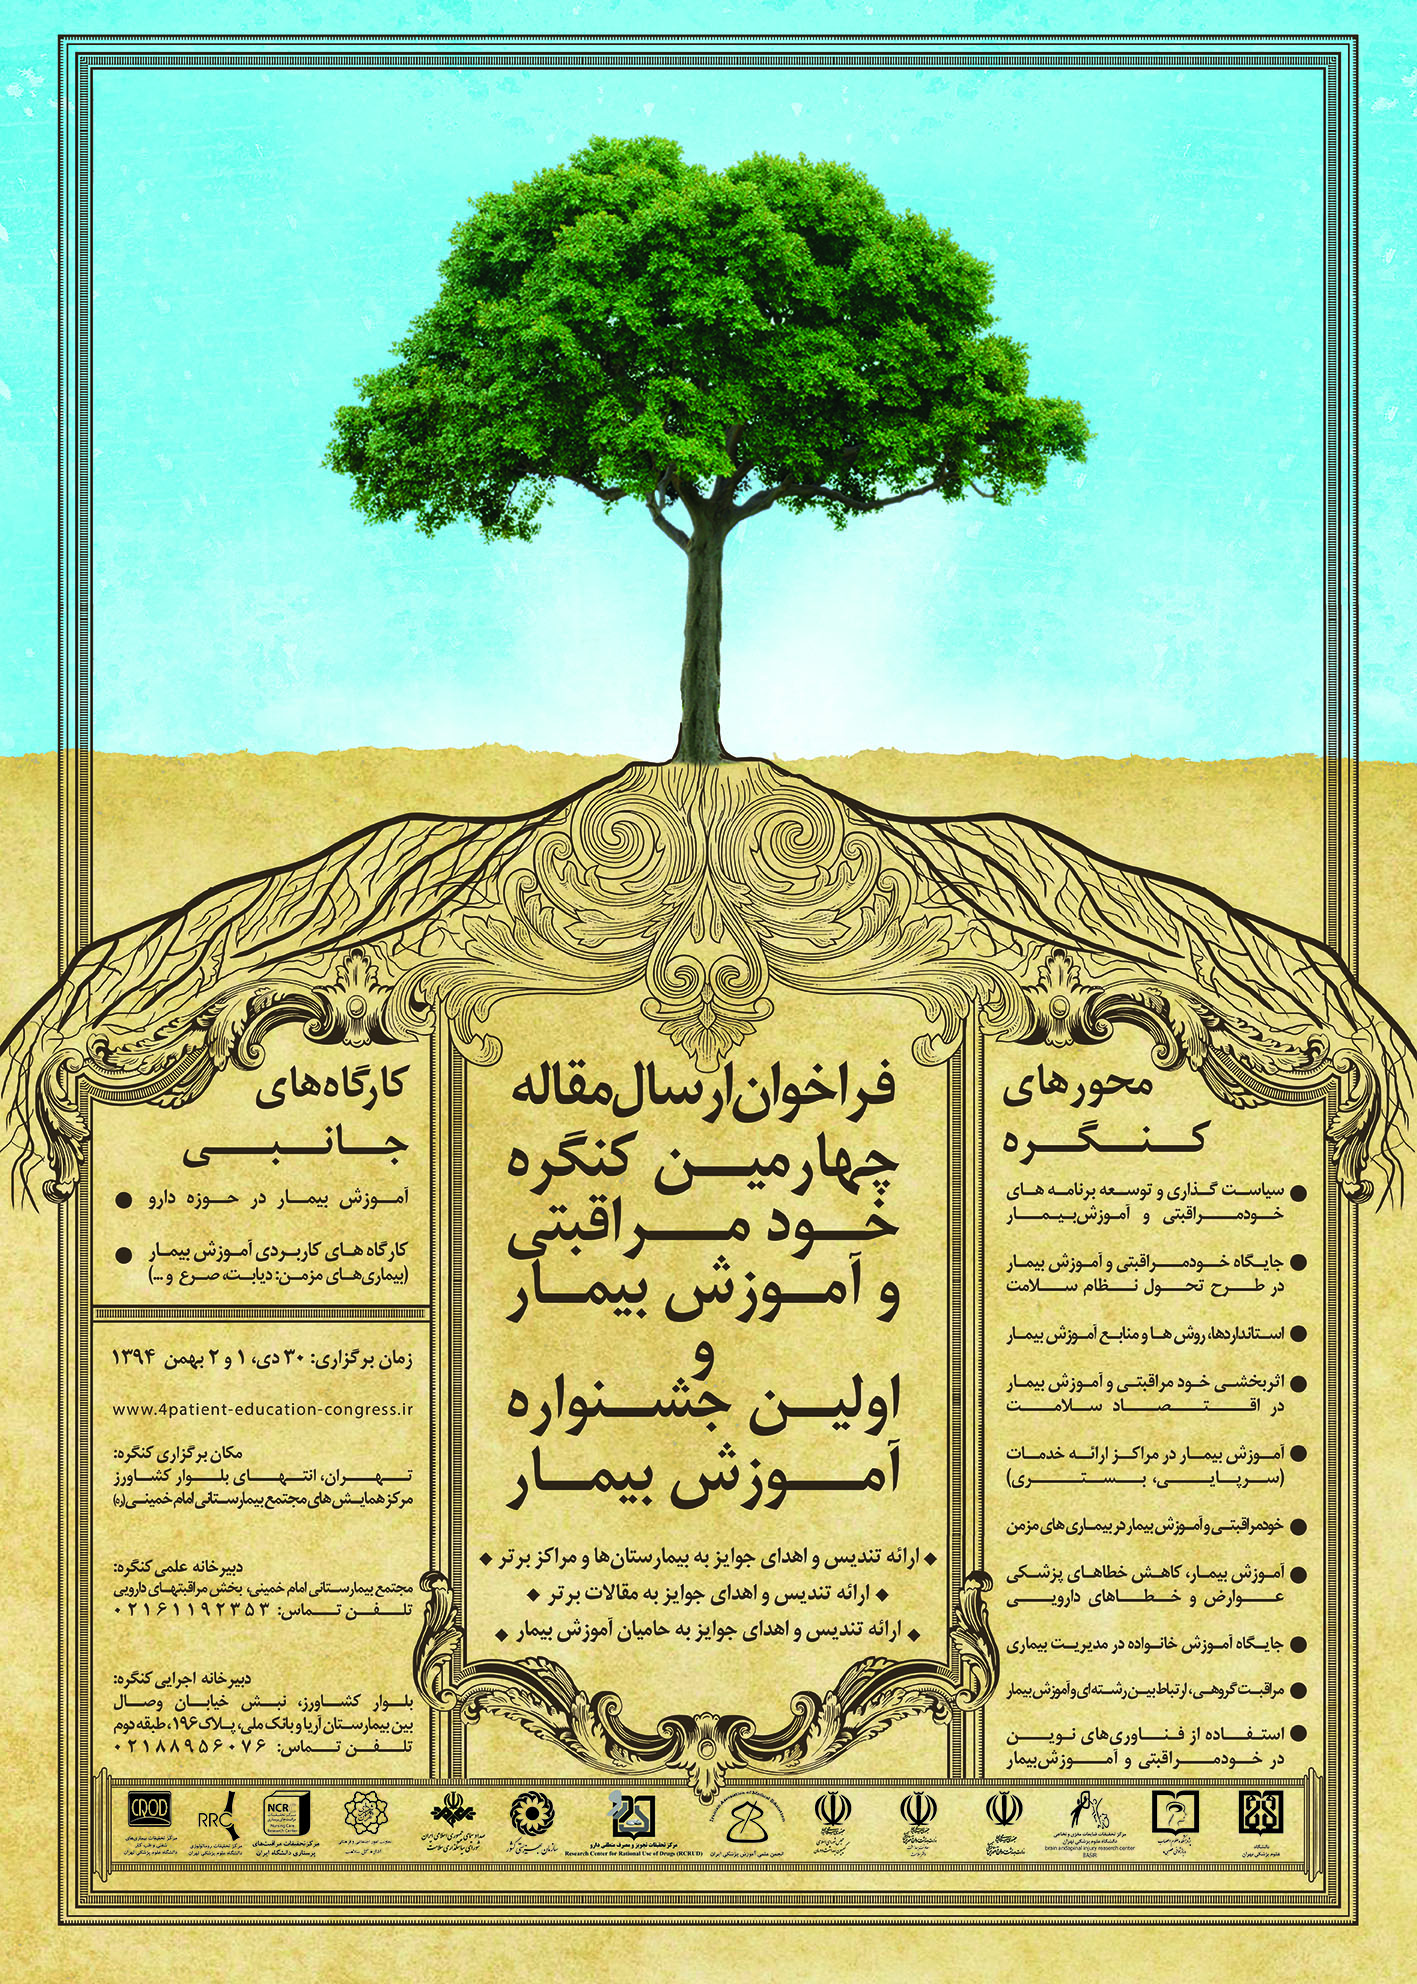 فراخوان ارسال مقاله
چهارمین کنگره
خود مراقبتی
و آموزش بیمار
و
اولین جشنواره
آموزش بیمار
ارائه تندیس و اهدای جوایز به بیمارستان‌ها و مراکز برتر
ارائه تندیس و اهدای جوایز به مقالات برتر
ارائه تندیس و اهدای جوایز به حامیان آموزش بیمار
محورهای
کنگره
سیاست گذاری و توسعه برنامه های
خودمراقبتی و آموزش‌بیمار
جایگاه خودمراقبتی و آموزش بیمار
در طرح تحول نظام سلامت
استانداردها، روش ها و منابع آموزش بیمار
اثربخشی خود مراقبتی و آموزش بیمار
در اقتصاد سلامت
آموزش بیمار در مراکز ارائه خدمات
(سرپایی، بستری)
خودمراقبتی و آموزش بیمار در بیماری های مزمن
آموزش بیمار، کاهش خطاهای پزشکی
عوارض و خطاهای دارویی
جایگاه آموزش خانواده در مدیریت بیماری
مراقبت گروهی، ارتباط بین رشته‌ای و آموزش بیمار
استفاده از فناوری‌های نوین
در خودمراقبتی و آموزش‌بیمار
کارگاه‌های
جانبی
آموزش بیمار در حوزه دارو
کارگاه های کاربردی آموزش بیمار
(بیماری‌های مزمن: دیابت، صرع و ...)
زمان برگزاری: ۳۰ دی، ۱ و ۲ بهمن ۱۳۹۴
www.4patient-education-congress.ir
مکان برگزاری کنگره:
تهران، انتهای بلوار کشاورز
مرکز همایش های مجتمع بیمارستانی امام خمینی(ره)
دبیرخانه علمی کنگره:
مجتمع بیمارستانی امام خمینی، بخش مراقبتهای دارویی
تلفن تماس: ۰۲۱۶۱۱۹۲۳۵۳
دبیرخانه اجرایی کنگره:
بلوار کشاورز، نبش خیابان وصال
بین بیمارستان آریا و بانک ملی، پلاک۱۹۶، طبقه دوم
تلفن تماس: ۰۲۱۸۸۹۵۶۰۷۶
دانشگاه
علوم پزشکی تهران
مرکز تحقیقات ضایعات مغزی و نخاعی
دانشگاه علوم پزشکی تهران
brain andspinal injury research center
BASIR
انجمن علمی آموزش پزشکی ایران
مرکز تحقیقات تجویز و مصرف منطقی دارو
Research Center for Rational Use of Drugs (RCRUD)
سازمان بهزیستی کشور
صدا و سیمای جمهوری اسلامی ایران
NCR
Nursing Care
Research Center
مرکز تحقیقات مراقبت‌های
پرستاری دانشگاه ایران
RRC
مرکز تحقیقات روماتولوژی
دانشگاه علوم پزشکی تهران
CROD
مرکز تحقیقات بیماری‌های
شغلی و طب کار
دانشگاه علوم پزشکی تهران